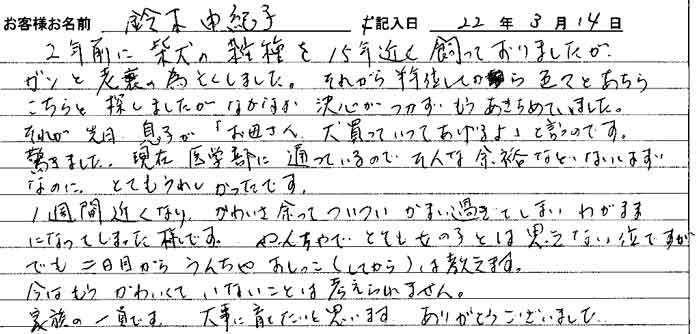 お客様お名前 鈴木由紀子 ご記入日 22年3月14日
2年前に柴犬の雑種を15年近く飼っておりましたが
ガンと老衰の為亡くしました。それから半年してから色々とあちら
こちらと探しましたがなかなか決心がつかず もうあきらめていました。
それが先日 息子が「お母さん 犬買っていってあげるよ」と言うのです。
驚きました。現在医学部に通っているのでそんな余裕などないはず
なのに、とてもうれしかったです。
1週間近くなり、かわいさ余ってついついかまい過ぎてしまいわがまま
になってしまった様です。やんちゃでとても女の子とは思えない位ですが
でも二日目からうんちやおしっこ(してから)は教えます。
今はもうかわいくていないことは考えられません。
家族の一員です。大事に育てたいと思います ありがとうございました